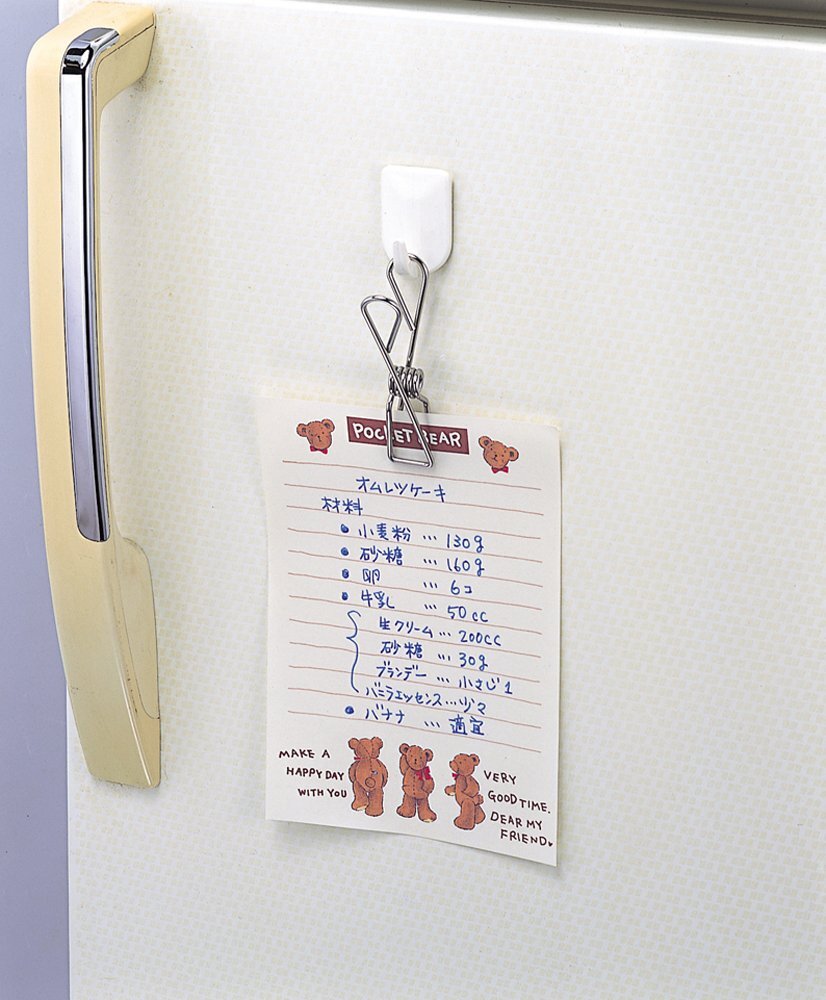 POCKET BEAR
オムレツケーキ
材料
• 小麦粉 … 130g
• 砂糖 … 160g
• 卵 … 6コ
• 牛乳 … 50cc
生クリーム … 200cc
砂糖 … 30g
ブランデー … 小さじ1
バニラエッセンス … 少々
• バナナ … 適宜
MAKE A
HAPPY DAY
WITH YOU
VERY
GOOD TIME.
DEAR MY
FRIEND♥